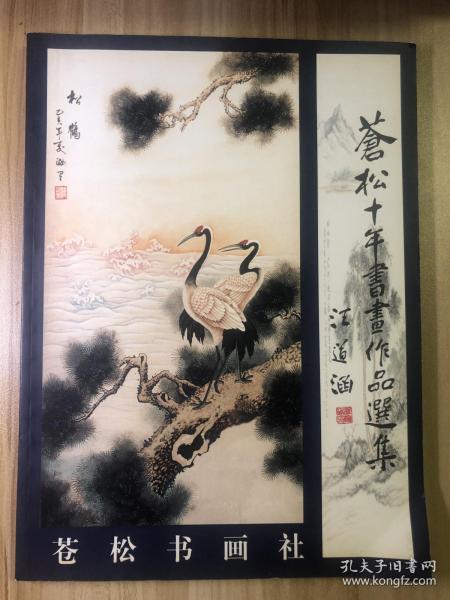 蒼松十年書畫作品選集
汪道涵
松鶴
乙亥年夏
苍松书画社
孔夫子旧书网
www.kongfz.com